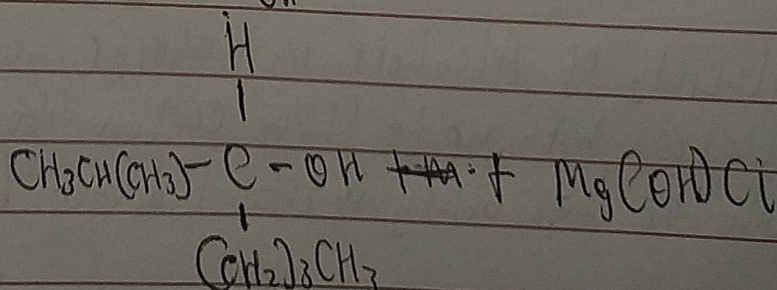 H
|
CH3CH(CH3)-C-OH + Mg(OH)Cl
|
(CH2)3CH3